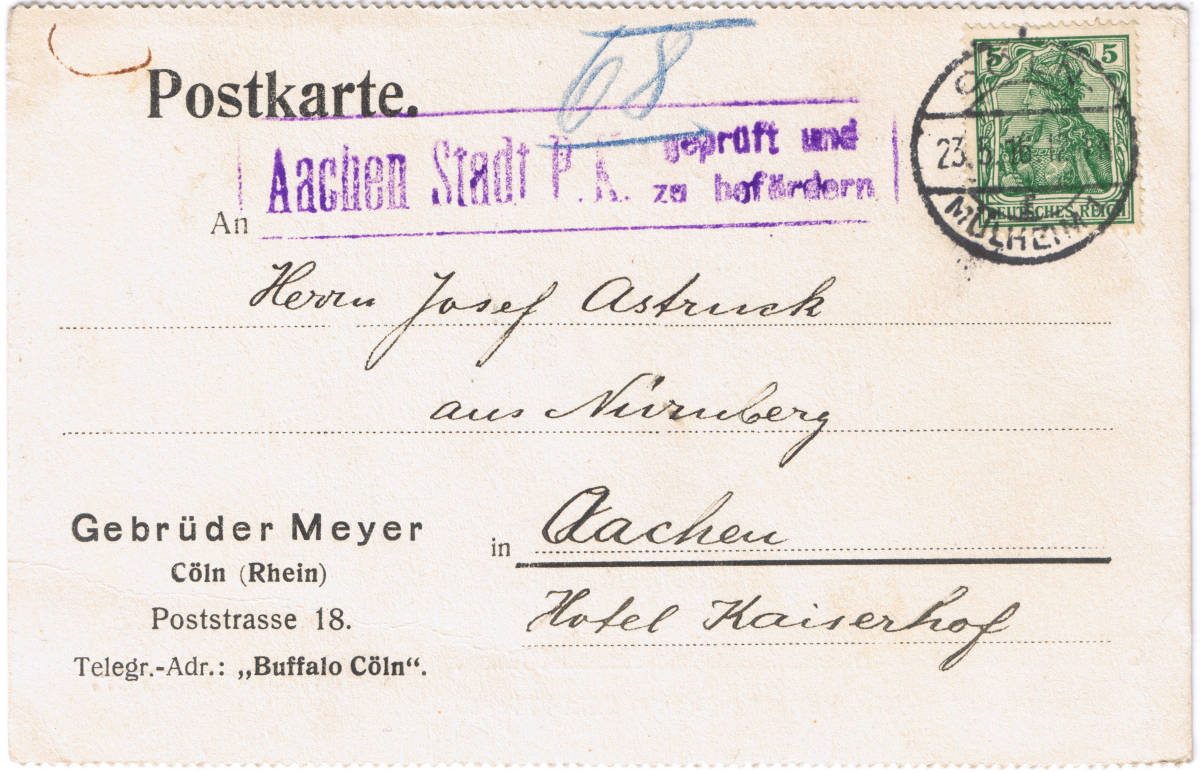 68
Postkarte.
5 5
DEUTSCHES REICH
23.5.16.
MÜLHEIM
Aachen Stadt P.K. geprüft und
zu befördern
An
Herrn Josef Astruck
aus Nürnberg
in Aachen
Hotel Kaiserhof
Gebrüder Meyer
Cöln (Rhein)
Poststrasse 18.
Telegr.-Adr.: „Buffalo Cöln“.